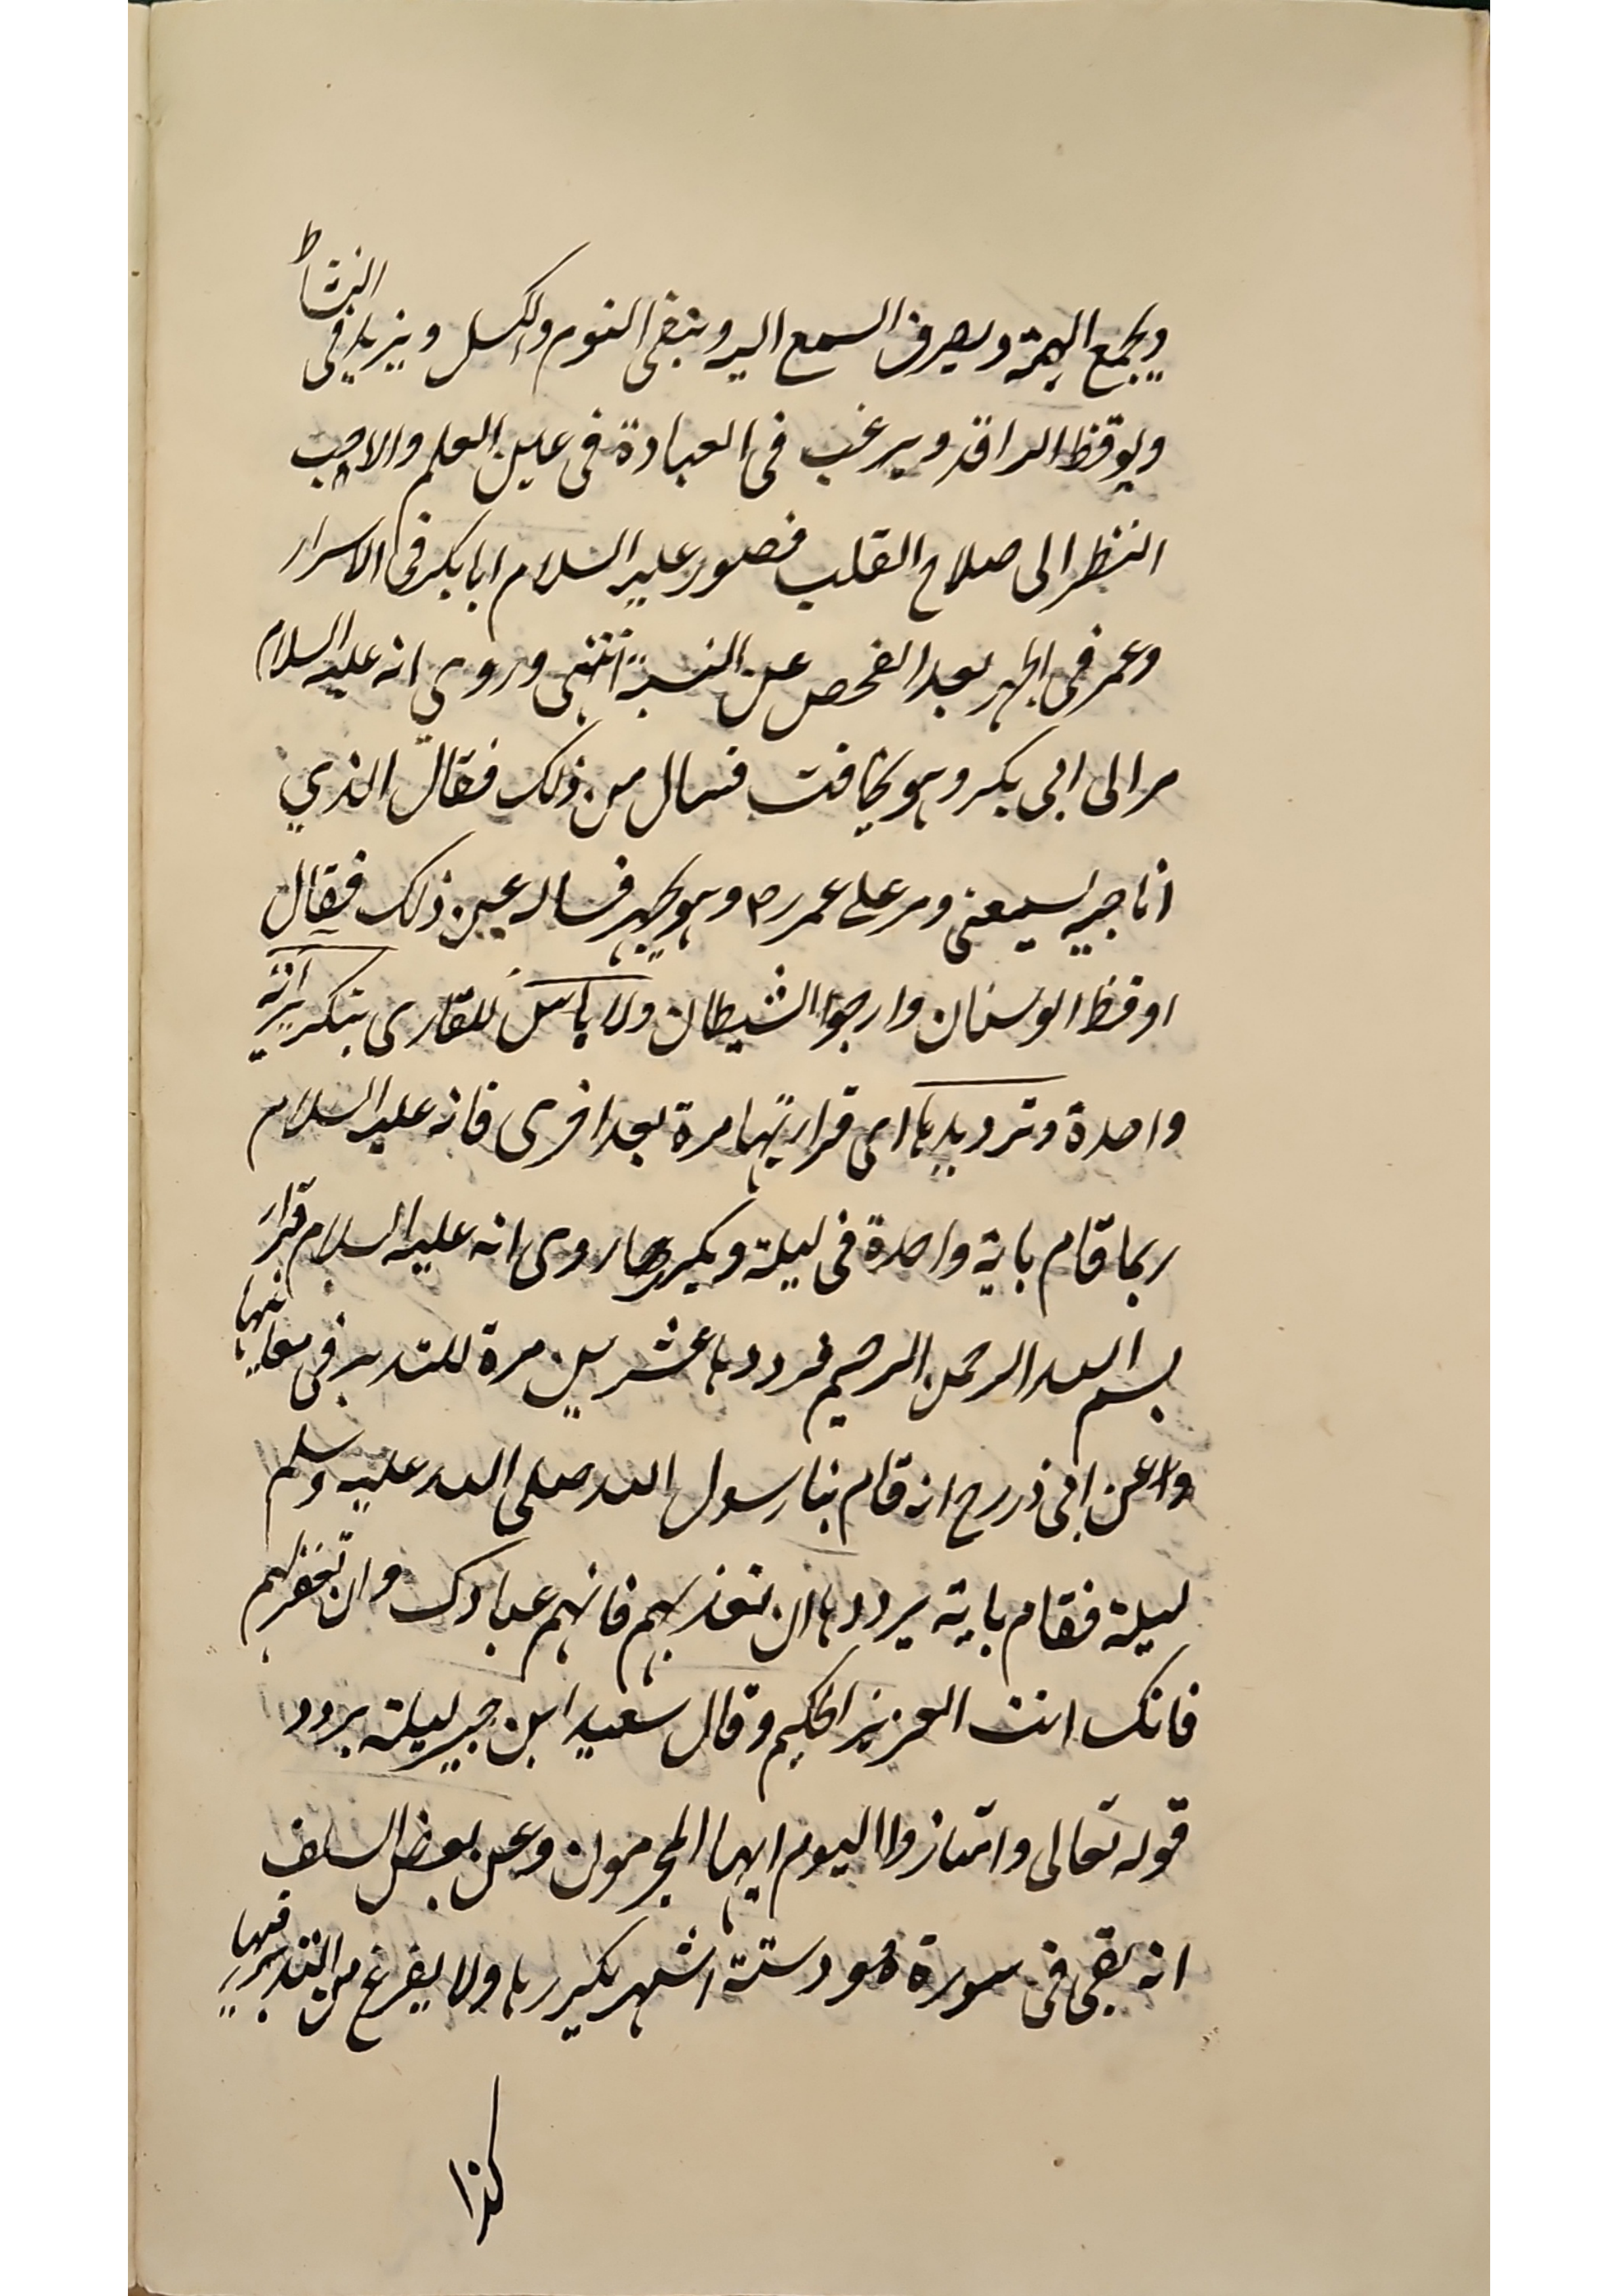 ويجمع الهمة ويصرف السمع اليه وينفى النوم والكسل ويزيد فى النشاط
ويوقظ الراقد ويرغب فى العبادة فى عين العلم والاحب
النظر الى صلاح القلب فصور عليه السلام ابا بكر فى الاسرار
وعمر فى الجهر بعد الفحص عن النية انتهى وروي انه عليه السلام
مر الى ابى بكر وهو يخافت فسال من ذلك فقال الذي
اناجيه يسمعنى ومر على عمر رض وهو يجهر فساله عن ذلك فقال
اوقظ الوسنان وارجوا الشيطان ولا باس للقارى بتكرير آية
واحدة وترديدها اى قراءتها مرة بعد اخرى فانه عليه السلام
ربما قام باية واحدة فى ليلة ويكررها روى انه عليه السلام قرا
بسم الله الرحمن الرحيم فرددها عشرين مرة للتدبر فى معانيها
وعن ابى ذر رح انه قام بنا رسول الله صلى الله عليه وسلم
ليلة فقام باية يرددها ان تعذبهم فانهم عبادك وان تغفر لهم
فانك انت العزيز الحكيم وقال سعيد ابن جبير ليلة يردد
قوله تعالى وامتازوا اليوم ايها المجرمون وعن بعض السلف
انه بقى فى سورة هود ستة اشهر يكررها ولا يفرغ من التدبر فيها
كذا